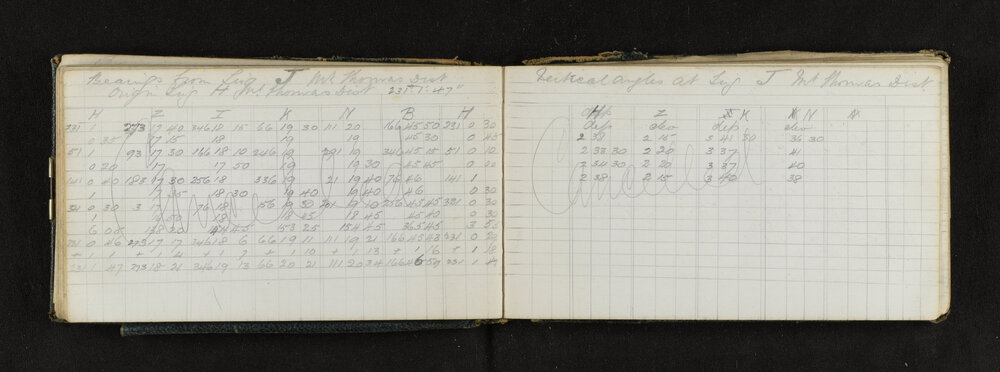 Bearings from Sig J Mt Thomas Dist
Origin Sig H Mt Thomas Dist 231° 1' 47"
H Z I K N B H
231 1 273 17 40 346 18 15 66 19 30 111 20 166 45 50 231 0 30
0 35 17 15 18 19 19 45 30 0 45
51 1 93 17 30 166 18 10 246 19 291 19 346 45 15 51 0 10
0 20 17 17 50 19 19 30 45 45 0 00
141 0 40 183 17 30 256 18 336 19 21 19 40 76 46 141 1
1 17 35 18 30 19 40 19 40 46 0 30
0 30 3 17 76 18 156 19 30 201 19 10 256 45 45 321 0 30
1 50 18 18 45 18 45 45 40 0 30
6 05 138 20 53 25 154 45 365 45 3 55
231 0 46 273 17 17 346 18 6 66 19 11 111 19 21 166 45 43 231 0 29
+ 1 1 + 1 4 + 1 7 + 1 10 + 1 13 + 1 16 + 1 18
231 1 47 273 18 21 346 19 13 66 20 21 111 20 34 166 46 59 231 1 47
Cancelled
Vertical Angles at Sig J Mt Thomas Dist.
H Z K N
dep elev dep elev
2 38 2 15 3 41 30 36 30
2 33 30 2 20 3 37 41
2 34 30 2 20 3 37 40
2 38 2 15 3 40 38
Cancelled